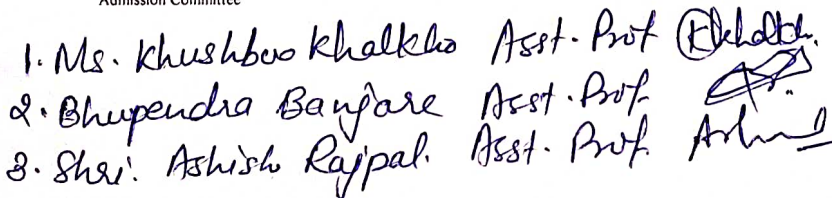 Admission Committee
1. Ms. Khushboo Khalkho Asst. Prof Kkhalkh.
2. Bhupendra Banjare Asst. Prof.
3. Shri. Ashish Rajpal. Asst. Prof.